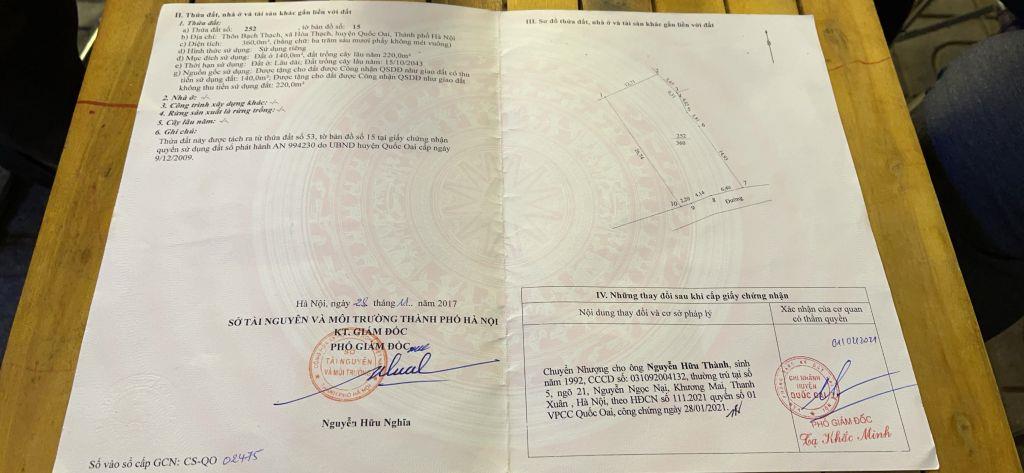 II. Thửa đất, nhà ở và tài sản khác gắn liền với đất
1. Thửa đất:
a) Thửa đất số: 252 , tờ bản đồ số: 15
b) Địa chỉ: Thôn Bạch Thạch, xã Hòa Thạch, huyện Quốc Oai, Thành phố Hà Nội
c) Diện tích: 360,0m², (bằng chữ: ba trăm sáu mươi phẩy không mét vuông)
d) Hình thức sử dụng: Sử dụng riêng
đ) Mục đích sử dụng: Đất ở 140,0m², đất trồng cây lâu năm 220,0m²
e) Thời hạn sử dụng: Đất ở: Lâu dài; Đất trồng cây lâu năm: 15/10/2043
g) Nguồn gốc sử dụng: Được tặng cho đất được Công nhận QSDĐ như giao đất có thu
tiền sử dụng đất: 140,0m²; Được tặng cho đất được Công nhận QSDĐ như giao đất
không thu tiền sử dụng đất: 220,0m²
2. Nhà ở: -/-
3. Công trình xây dựng khác: -/-
4. Rừng sản xuất là rừng trồng: -/-
5. Cây lâu năm: -/-
6. Ghi chú:
Thửa đất này được tách ra từ thửa đất số 53, tờ bản đồ số 15 tại giấy chứng nhận
quyền sử dụng đất số phát hành AN 994230 do UBND huyện Quốc Oai cấp ngày
9/12/2009.
Hà Nội, ngày 28 tháng 11.. năm 2017
SỞ TÀI NGUYÊN VÀ MÔI TRƯỜNG THÀNH PHỐ HÀ NỘI
KT. GIÁM ĐỐC
PHÓ GIÁM ĐỐC
SỞ
TÀI NGUYÊN
VÀ MÔI TRƯỜNG
Nguyễn Hữu Nghĩa
Số vào sổ cấp GCN: CS-QO 02475
III. Sơ đồ thửa đất, nhà ở và tài sản khác gắn liền với đất
1
252
360
14,93
7
10
2,20
4,14
6,40
9
8
Đường
IV. Những thay đổi sau khi cấp giấy chứng nhận
Nội dung thay đổi và cơ sở pháp lý
Xác nhận của cơ quan
có thẩm quyền
Chuyển Nhượng cho ông Nguyễn Hữu Thành, sinh
năm 1992, CCCD số: 031092004132, thường trú tại số
5, ngõ 21, Nguyễn Ngọc Nại, Khương Mai, Thanh
Xuân , Hà Nội, theo HĐCN số 111.2021 quyển số 01
VPCC Quốc Oai, công chứng ngày 28/01/2021.
CHI NHÁNH
HUYỆN
QUỐC OAI
PHÓ GIÁM ĐỐC
Tạ Khắc Minh